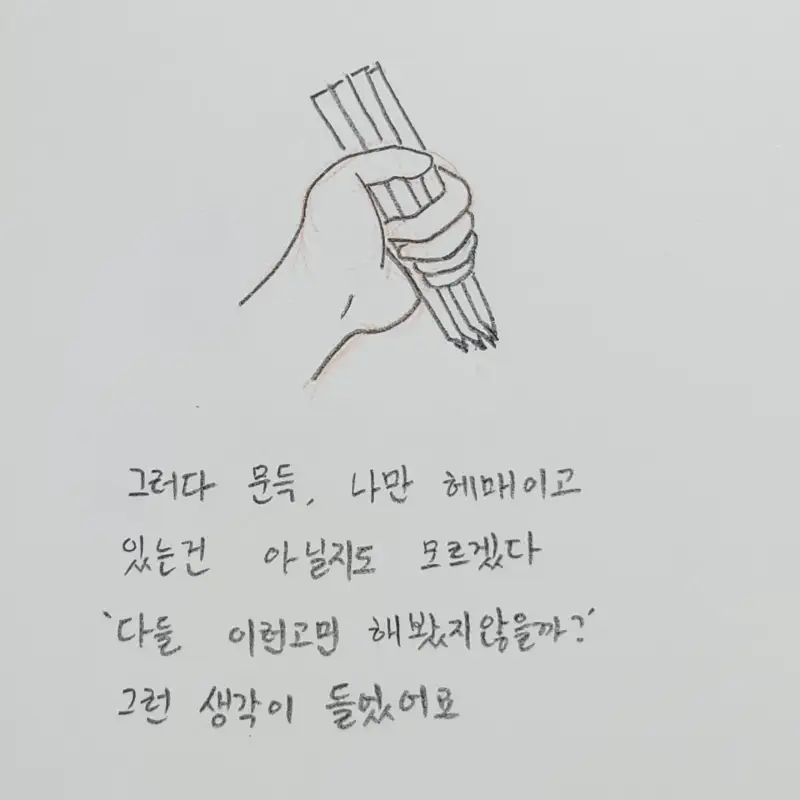 그러다 문득, 나만 헤매이고
있는건 아닐지도 모르겠다
'다들 이런고민 해봤지않을까?'
그런 생각이 들었어요